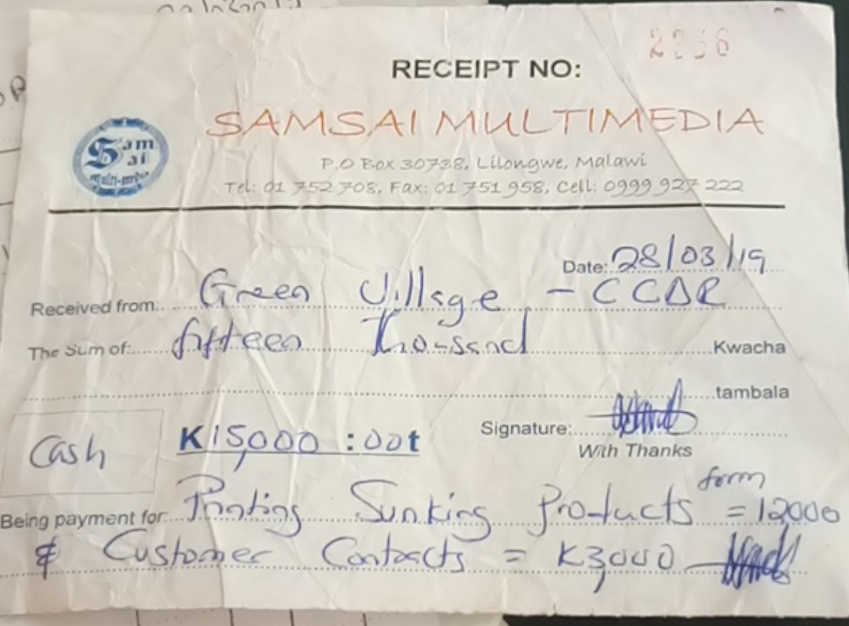 RECEIPT NO:
SAMSAI MULTIMEDIA
Sam
ai
Multi-media
P.O Box 30738, Lilongwe, Malawi
Tel: 01 752 708, Fax: 01 751 958, Cell: 0999 927 222
Date: 28/03/19
Received from: Green Village - CCDR
The Sum of: fifteen Thousand Kwacha
tambala
Cash K15,000 : 00t Signature:
With Thanks
form
Being payment for: Printing Sunking Products = 12000
& Customer Contacts = K3,000